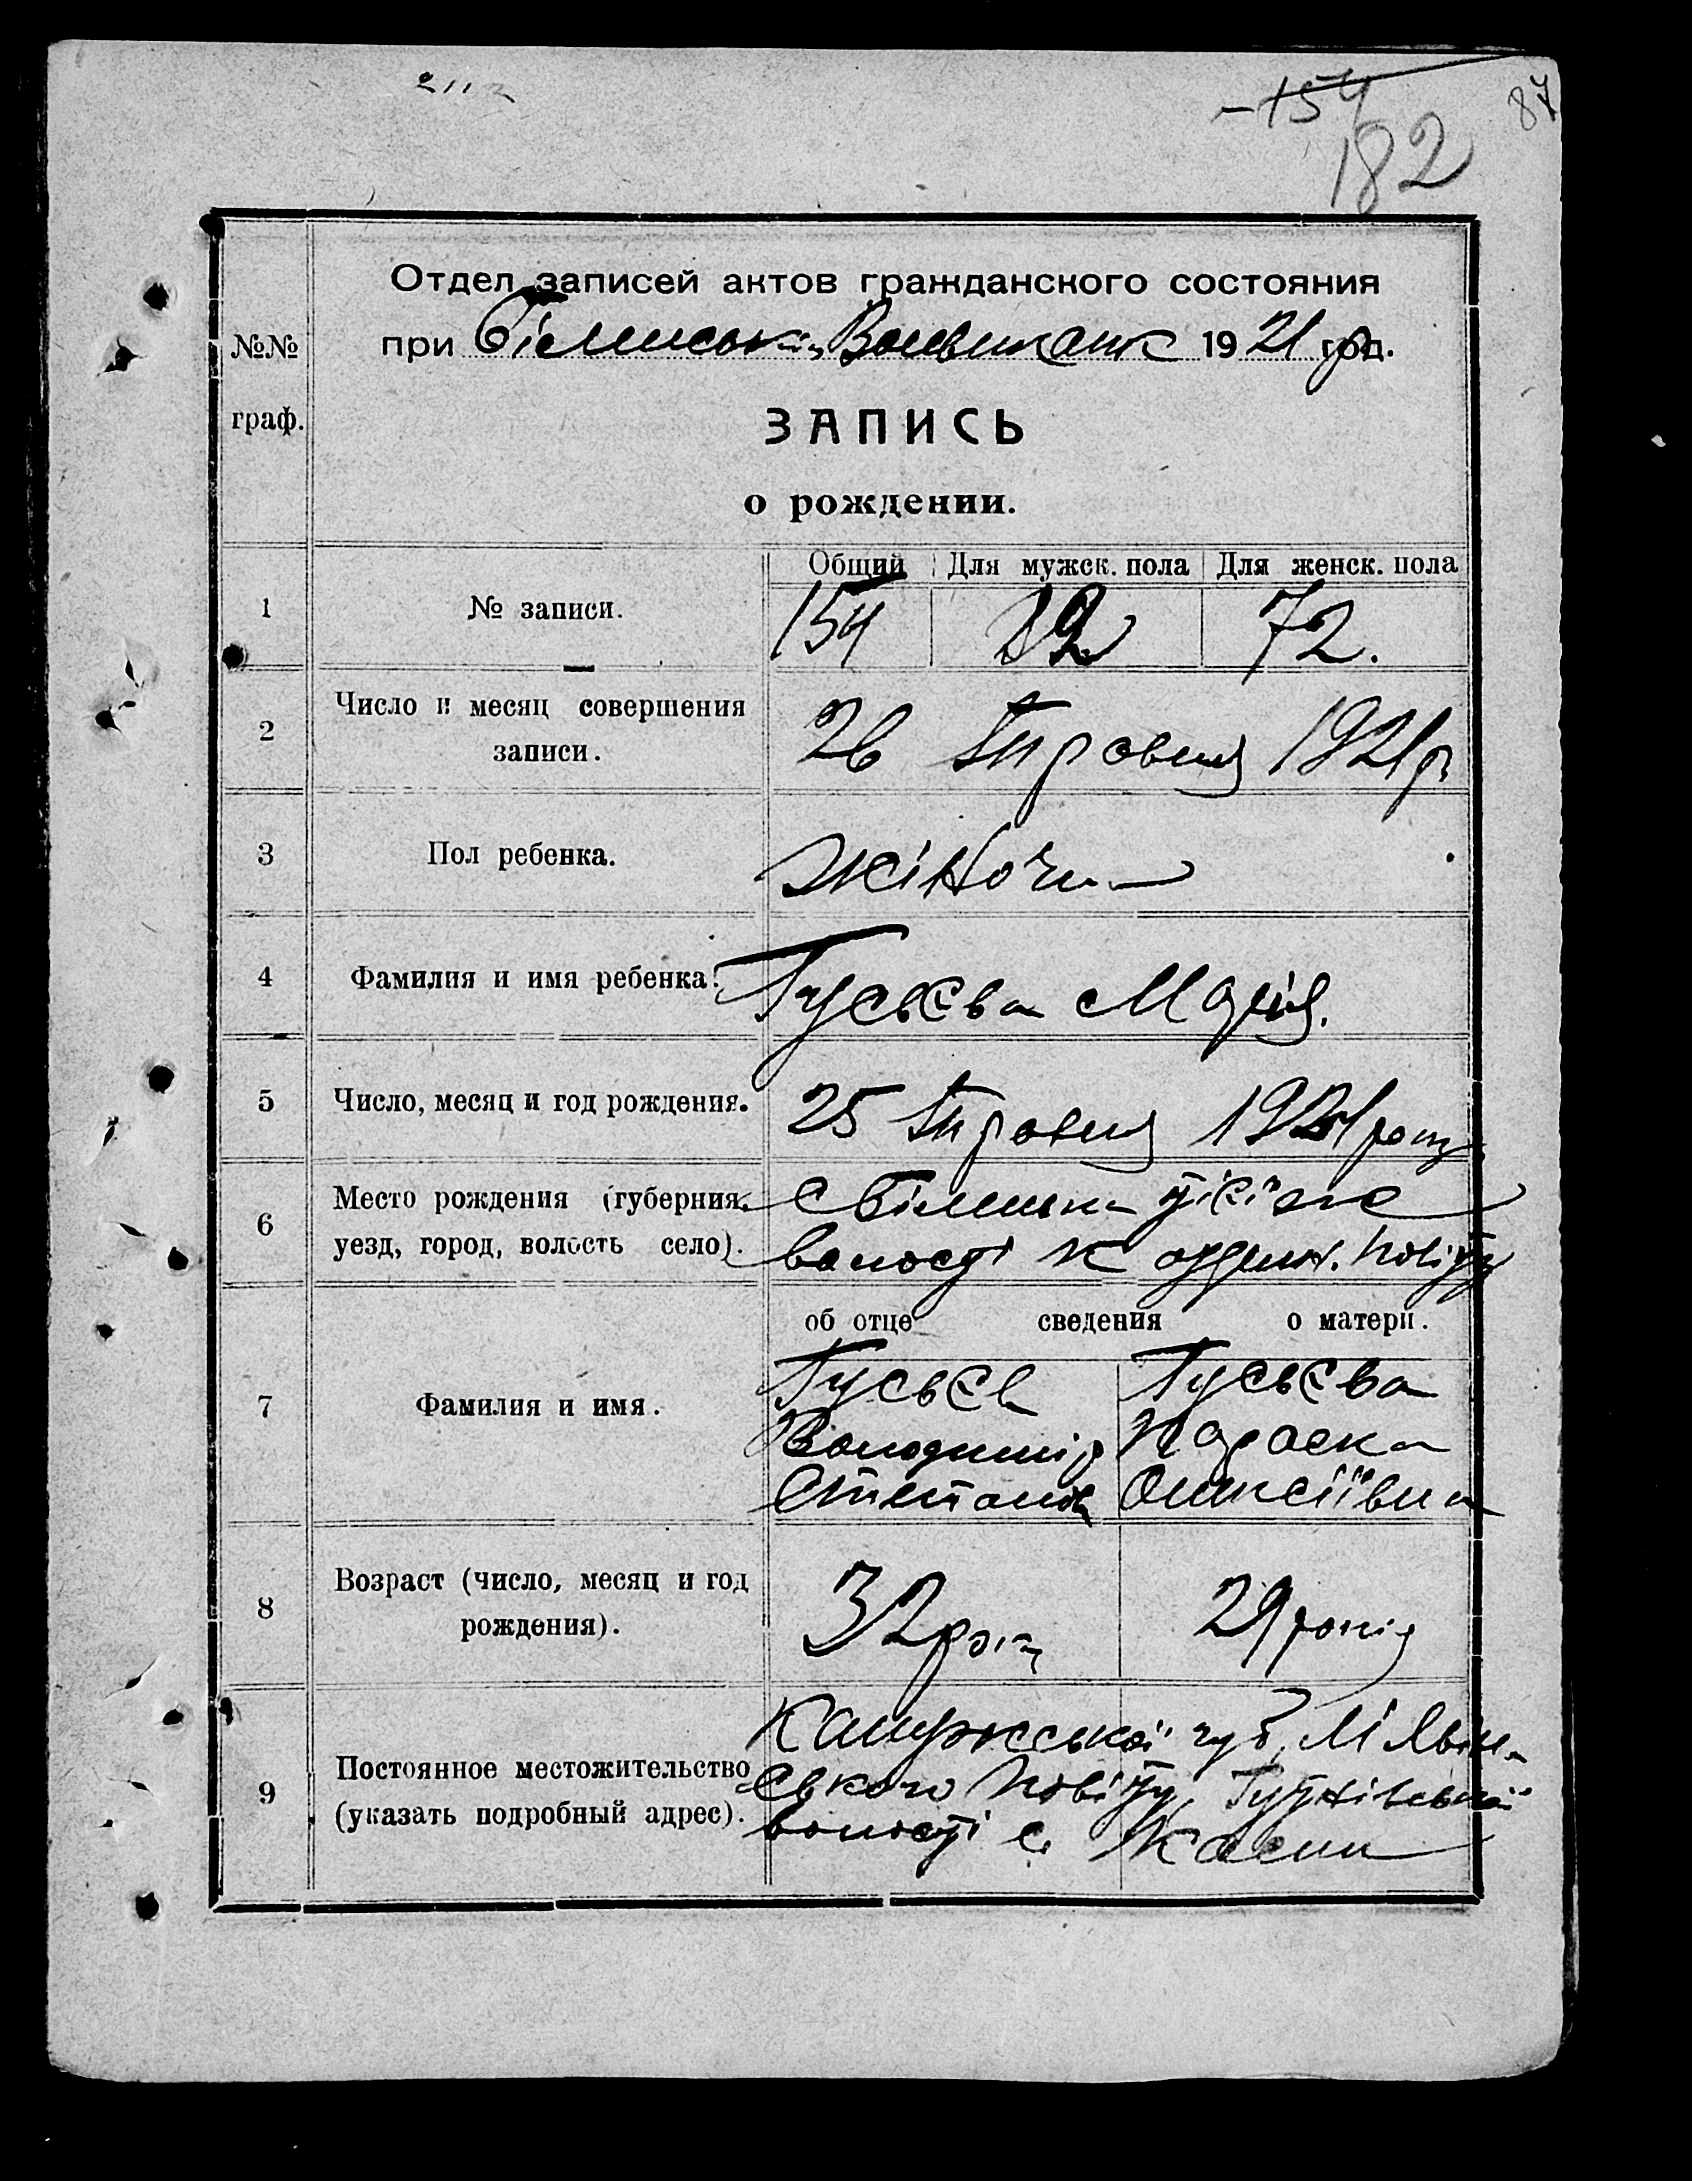 154
182
87
Отдел записей актов гражданского состояния
№№
при Білицькім Волвиконк 1921 р год.
граф.
ЗАПИСЬ
о рождении.
Общий Для мужск. пола Для женск. пола
1 № записи. 154 82 72.
2 Число и месяц совершения записи. 26 Травня 1921 р
3 Пол ребенка. жіноча
4 Фамилия и имя ребенка. Гусьєва Марія.
5 Число, месяц и год рождения. 25 Травня 1921 року
6 Место рождения (губерния, уезд, город, волость село).
волості повіту
об отце сведения о матери.
7 Фамилия и имя.
Гусьєв Гусьєва
Володимір Параска
Степанов Олексіївна
8 Возраст (число, месяц и год рождения). 32 рок 29 років
9 Постоянное местожительство (указать подробный адрес).
Калужської губ,
ського повіту,
волості с